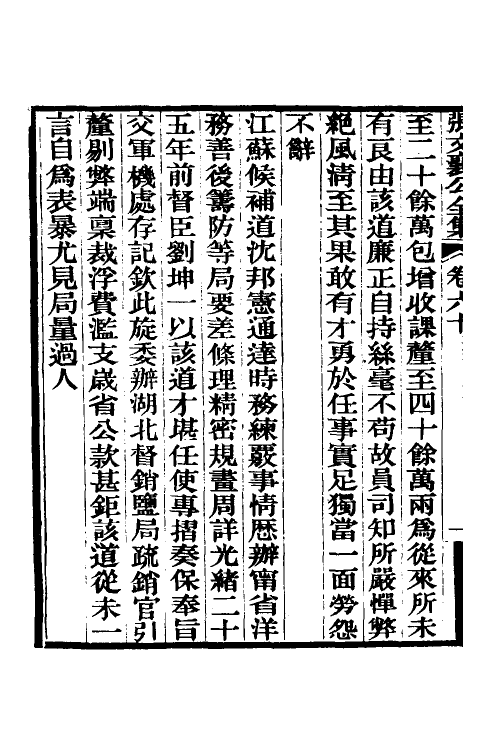 張文襄公全集 卷六十 一
至二十餘萬包增收課釐至四十餘萬兩爲從來所未
有良由該道廉正自持絲毫不苟故員司知所嚴憚弊
絕風清至其果敢有才勇於任事實足獨當一面勞怨
不辭
江蘇候補道沈邦憲通達時務練嚴事情歷辦甯省洋
務善後籌防等局要差條理精密規畫周詳光緒二十
五年前督臣劉坤一以該道才堪任使專摺奏保奉旨
交軍機處存記欽此旋委辦湖北督銷鹽局疏銷官引
釐剔弊端稟裁浮費濫支歲省公款甚鉅該道從未一
言自爲表暴尤見局量過人